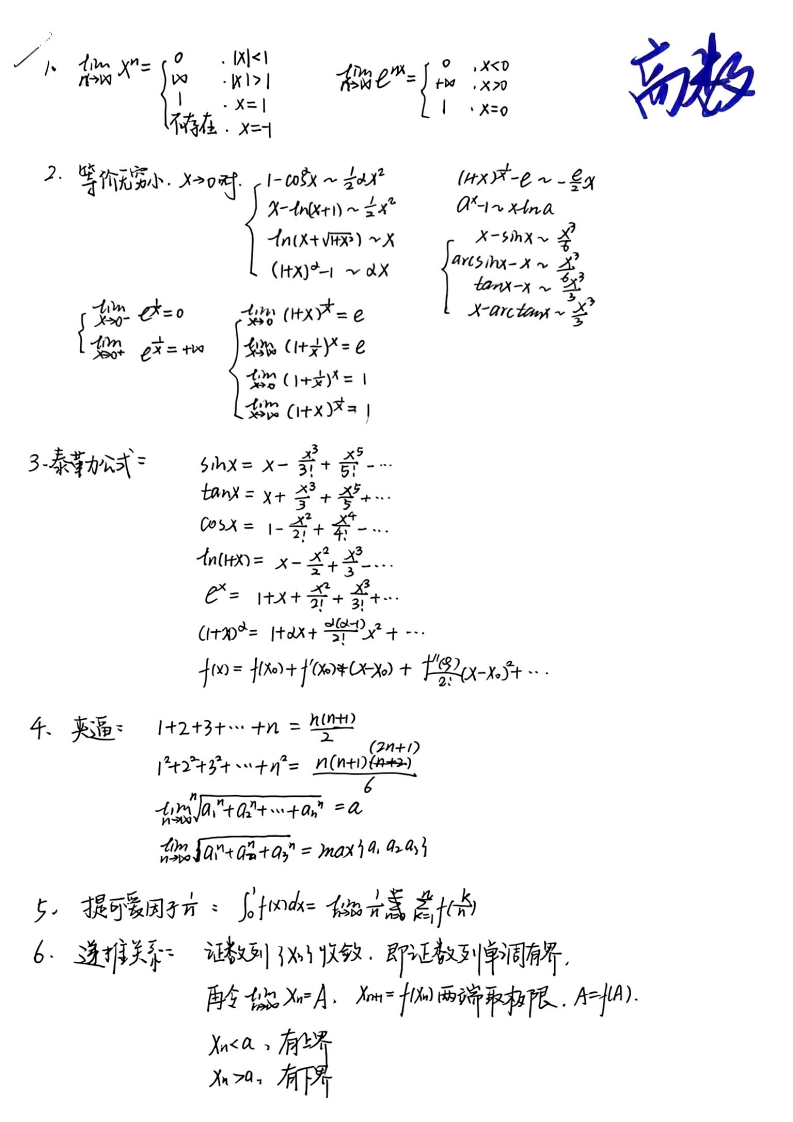 高数
1、 lim n→∞ xⁿ = { 0 , |x|<1
∞ , |x|>1
1 , x=1
不存在 , x=-1
lim n→∞ eⁿˣ = { 0 , x<0
+∞ , x>0
1 , x=0
2. 等价无穷小. x→0时.
1-cos^αx ~ ½αx²
x-ln(x+1) ~ ½x²
ln(x+√(1+x²)) ~ x
(1+x)^α-1 ~ αx
(1+x)^(1/x)-e ~ -(e/2)x
aˣ-1 ~ xlna
x-sinx ~ x³/6
arcsinx-x ~ x³/6
tanx-x ~ x³/3
x-arctanx ~ x³/3
lim x→0⁻ e^(1/x)=0
lim x→0⁺ e^(1/x)=+∞
lim x→0 (1+x)^(1/x) = e
lim x→∞ (1+1/x)ˣ = e
lim x→0 (1+1/x)ˣ = 1
lim x→∞ (1+x)^(1/x) = 1
3.泰勒公式:
sinx = x - x³/3! + x⁵/5! - ...
tanx = x + x³/3 + x⁵/5 + ...
cosx = 1 - x²/2! + x⁴/4! - ...
ln(1+x) = x - x²/2 + x³/3 - ...
eˣ = 1+x+ x²/2! + x³/3! + ...
(1+x)^α = 1+αx+ α(α-1)/2! x² + ...
f(x) = f(x₀)+f'(x₀)(x-x₀) + f''(ξ)/2! (x-x₀)²+ ...
4、夹逼: 1+2+3+...+n = n(n+1)/2
1²+2²+3²+...+n² = n(n+1)(2n+1)/6
lim n→∞ ⁿ√(a₁ⁿ+a₂ⁿ+...+aₙⁿ) = a
lim n→∞ √(a₁ⁿ+a₂ⁿ+a₃ⁿ) = max{a₁ a₂ a₃}
5、提可爱因子1/n : ∫₀¹f(x)dx = lim n→∞ 1/n Σ k=1 n f(k/n)
6. 递推关系: 证数列{xₙ}收敛. 即证数列单调有界,
再令 lim n→∞ xₙ=A. xₙ₊₁=f(xₙ)两端取极限. A=f(A).
xₙ<a, 有上界
xₙ>a, 有下界